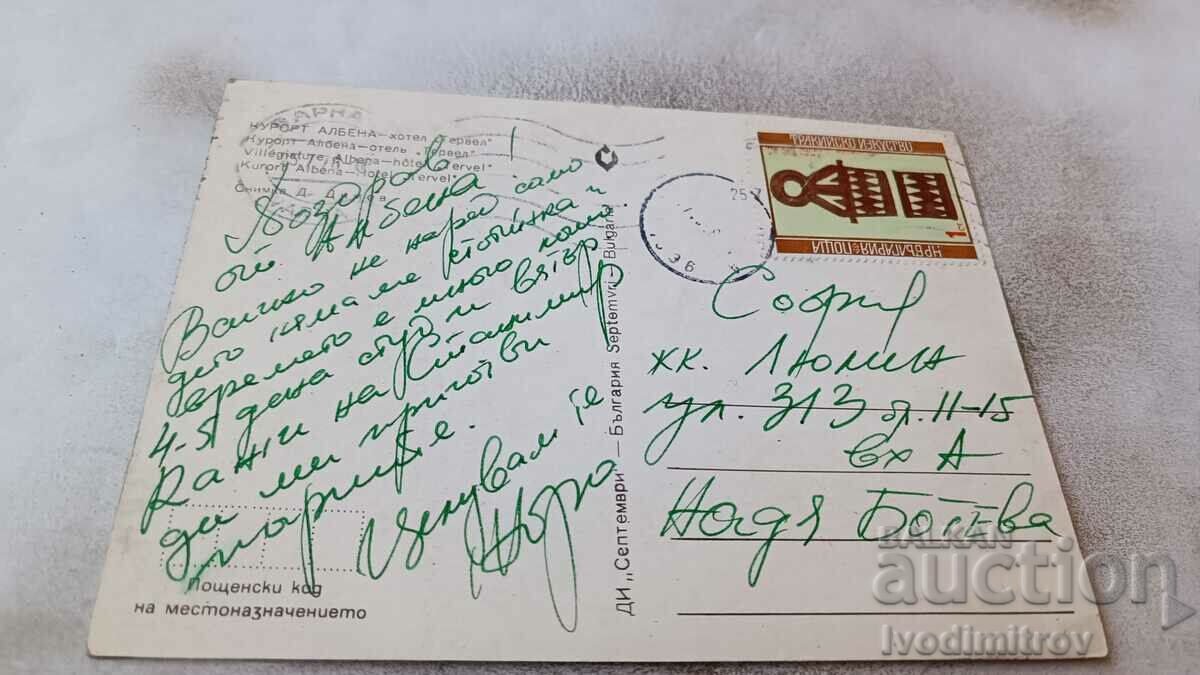 КУРОРТ АЛБЕНА — хотел „Тервел"
Курорт Албена — отель „Тервел"
Villégiature Albena — hôtel „Tervel"
Kurort Albena — Hotel „Tervel"
Снимка Д.
ВАРНА
Поздрав!
от Албена
Всичко е наред само
дето нямаме стотинка и
времето е много лошо
4-5 дена студ и вятър
Кажи на Станимир
да ми приготви
Целувам те
Пощенски код
на местоназначението
ДИ „Септември" — България Septemvri — Bulgaria
ТРАКИЙСКО ИЗКУСТВО
1
НР БЪЛГАРИЯ ПОЩА
25
36
София
жк. Люлин
ул. 313 бл. 11-15
вх А
Надя Ботева
BALKAN
auction
Ivodimitrov